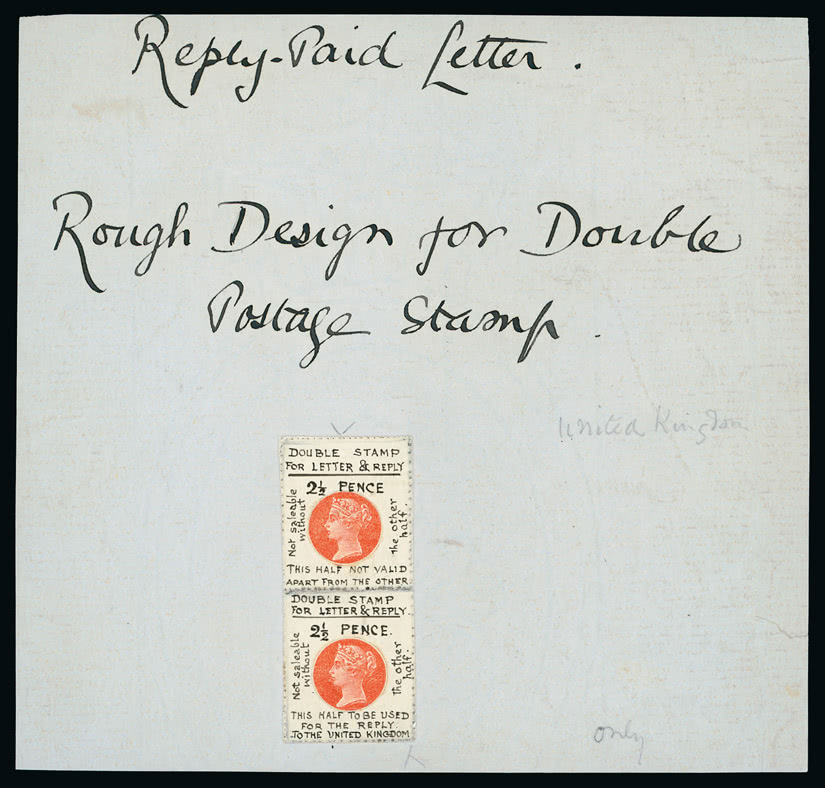 Reply-Paid Letter.
Rough Design for Double
Postage Stamp.
United Kingdom
DOUBLE STAMP
FOR LETTER & REPLY
2½ PENCE
Not saleable
without
the other
half.
THIS HALF NOT VALID
APART FROM THE OTHER
DOUBLE STAMP
FOR LETTER & REPLY.
2½ PENCE.
Not saleable
without
the other
half.
THIS HALF TO BE USED
FOR THE REPLY.
TO THE UNITED KINGDOM
only